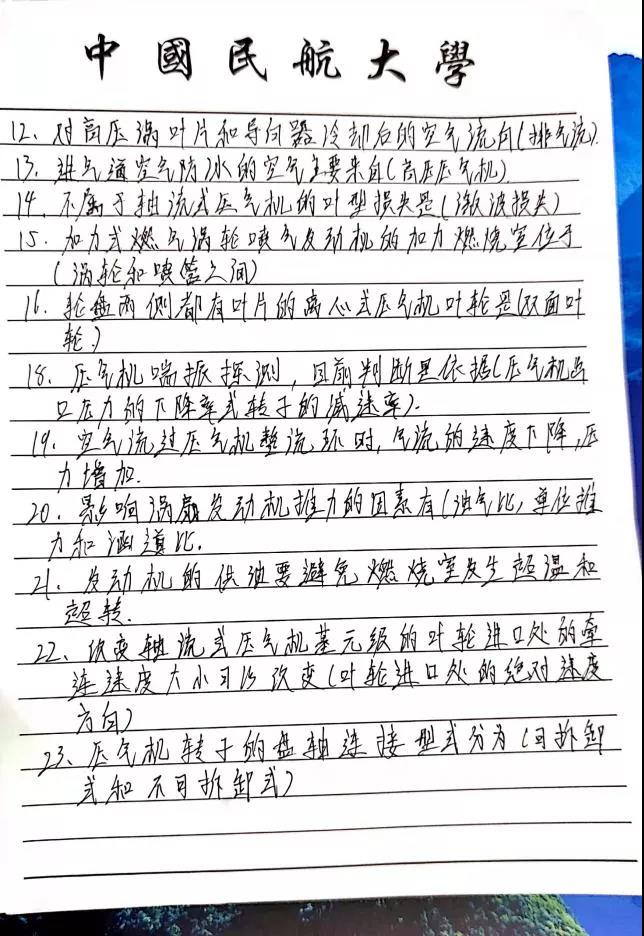 中國民航大學
12、对高压涡叶片和导向器冷却后的空气流向(排气流).
13、进气道空气防冰的空气主要来自(高压压气机)
14、不属于轴流式压气机的叶型损失是(激波损失)
15、加力式燃气涡轮喷气发动机的加力燃烧室位于
(涡轮和喷管之间)
16、轮盘两侧都有叶片的离心式压气机叶轮是(双面叶
轮)
18、压气机喘振探测,目前判断是依据(压气机出
口压力的下降率或转子的减速率).
19、空气流过压气机整流环时,气流的速度下降,压
力增加.
20、影响涡扇发动机推力的因素有(油气比,单位推
力和涵道比.
21、发动机的供油要避免燃烧室发生超温和
超转.
22、改变轴流式压气机基元级的叶轮进口处的牵
连速度大小可以改变(叶轮进口处的绝对速度
方向)
23、压气机转子的盘轴连接型式分为(可拆卸
式和不可拆卸式)